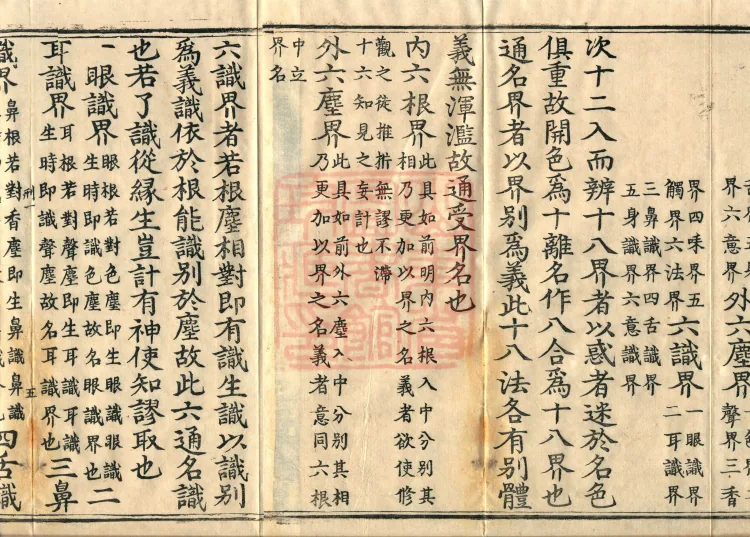 界六意界
外六塵界
聲界三香
界四味界五
觸界六法界
六識界
一眼識界
二耳識界
三鼻識界四舌識界
五身識界六意識界
次十二入而辨十八界者以惑者迷於名色
俱重故開色為十離名作八合為十八界也
通名界者以界別為義此十八法各有別體
義無渾濫故通受界名也
內六根界
此具如前明內六根入中分別其
相乃更加以界之名義者欲使修
觀之徒推撿無謬不滯
十六知見之妄計也
外六塵界
此具如前外六塵入中分別其相
乃更加以界之名義者意同六根
中立
界名
六識界者若根塵相對即有識生識以識別
為義識依於根能識別於塵故此六通名識
也若了識從緣生豈計有神使知謬取也
一眼識界
眼根若對色塵即生眼識眼識
生時即識色塵故名眼識界也
二
耳識界
耳根若對聲塵即生耳識耳識
生時即識聲塵故名耳識界也
三鼻
刑一
五
識界
鼻根若對香塵即生鼻識鼻識
四舌識